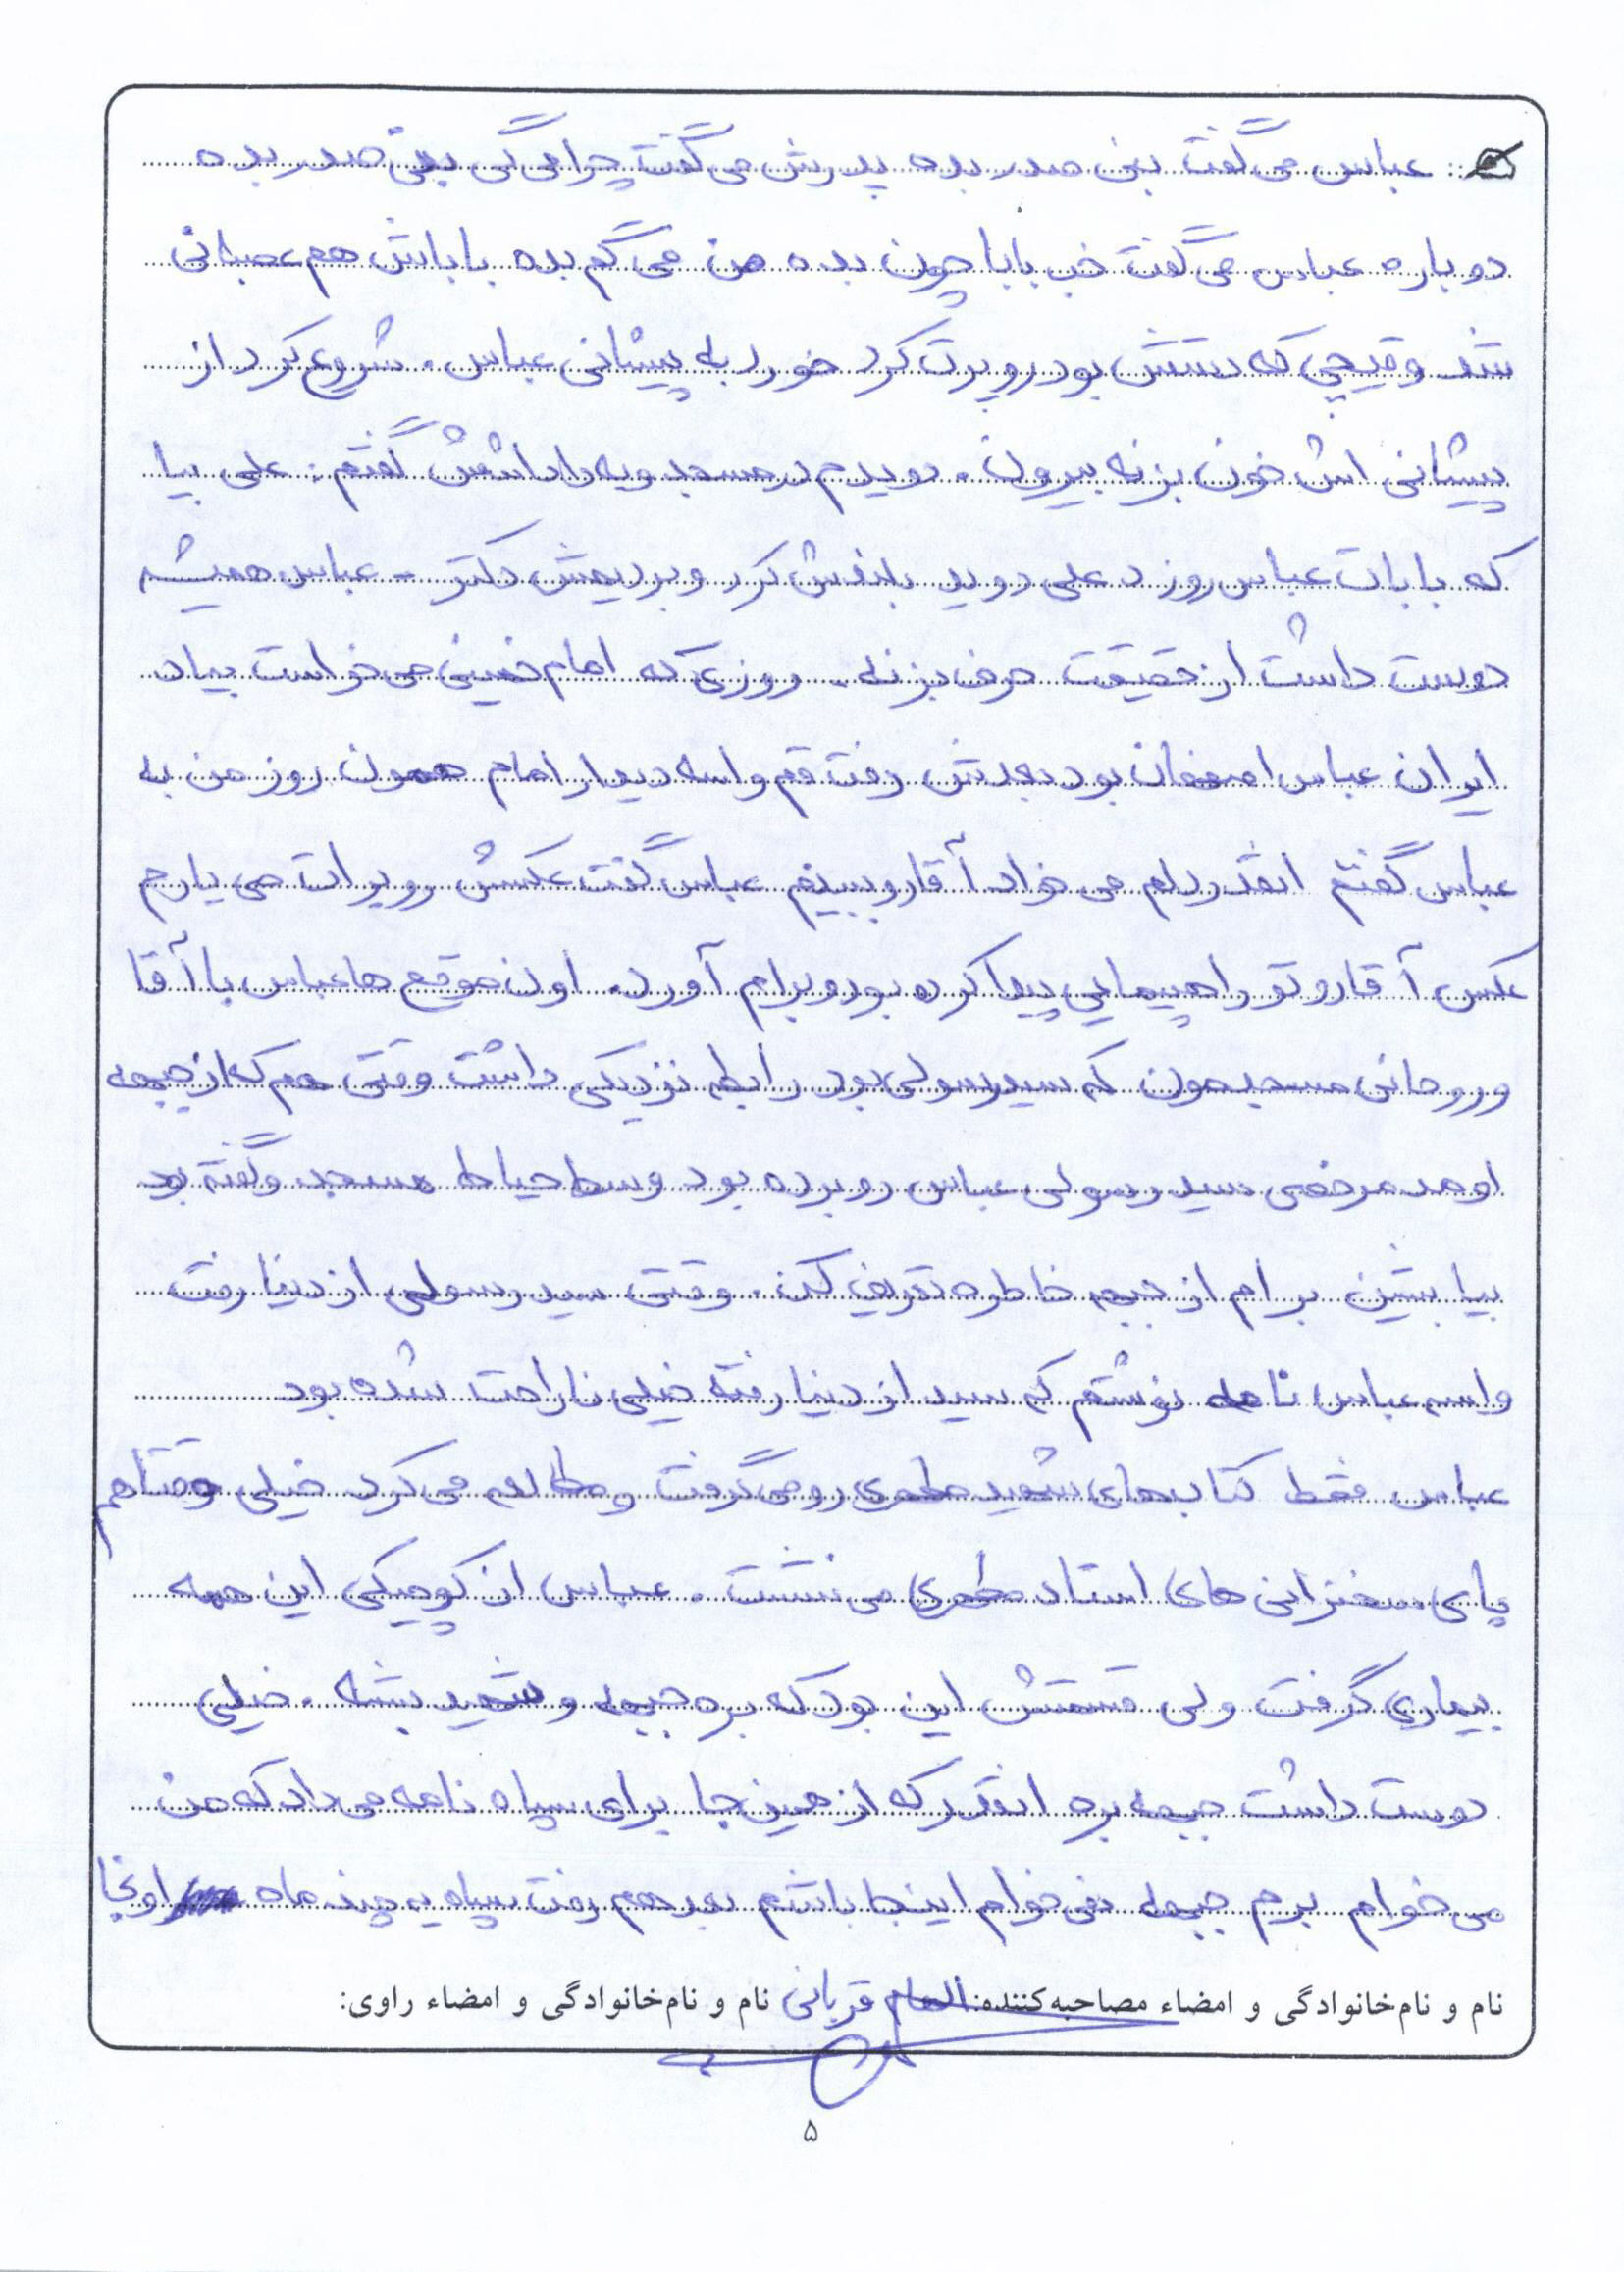 عباس می گفت بنی صدر بده پدرش می گفت چرا می گی بنی صدر بده
دوباره عباس می گفت خب بابا چون بده من می گم بده باباش هم عصبانی
شد و قیچی که دستش بود رو پرت کرد خورد به پیشانی عباس. شروع کرد از
پیشانی اش خون بزنه بیرون. دویدم در مسجد و به داداشش گفتم: علی بیا
که بابات عباس رو زد علی دوید بلندش کرد و بردیمش دکتر - عباس همیشه
دوست داشت از حقیقت حرف بزنه. روزی که امام خمینی می خواست بیاد
ایران عباس اصفهان بود بعدش رفت قم واسه دیدار امام همون روز من به
عباس گفتم انقدر دلم می خواد آقا رو ببینم عباس گفت عکسش رو برات می یارم
عکس آقا رو تو راهپیمایی پیدا کرده بود و برام آورد. اون موقع ها عباس با آقا
و روحانی مسجدمون که سید رسولی بود رابطه نزدیکی داشت وقتی هم که از جبهه
اومد مرخصی سید رسولی عباس رو برده بود وسط حیاط مسجد و گفته بود
بیا بشین برام از جبهه خاطره تعریف کن. وقتی سید رسولی از دنیا رفت
واسه عباس نامه نوشتم که سید از دنیا رفته خیلی ناراحت شده بود
عباس فقط کتاب های شهید مطهری رو می گرفت و مطالعه می کرد خیلی وقتا هم
پای سخنرانی های استاد مطهری می نشست. عباس از کوچیکی این همه
بیماری گرفت ولی قسمتش این بود که بره جبهه و شهید بشه. خیلی
دوست داشت جبهه بره انقدر که از همین جا برای سپاه نامه می داد که من
می خوام برم جبهه نمی خوام اینجا باشم بعد هم رفت سپاه یه چند ماه اونجا
نام و نام‌خانوادگی و امضاء مصاحبه‌کننده: الهام قربانی نام و نام‌خانوادگی و امضاء راوی:
۵